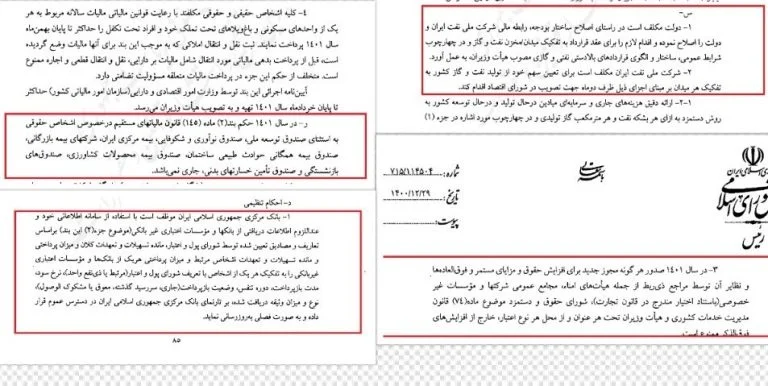 ۴- کلیه اشخاص حقیقی و حقوقی مکلفند با رعایت قوانین مالیاتی مالیات سالانه مربوط به هر
یک از واحدهای مسکونی و باغ‌ویلاهای تحت تملک خود و افراد تحت تکفل را حداکثر تا پایان بهمن‌ماه
سال ۱۴۰۱ پرداخت نمایند. ثبت نقل و انتقال املاکی که به موجب این بند برای آنها مالیات وضع گردیده
است، قبل از پرداخت بدهی مالیاتی مورد انتقال شامل مالیات بر دارایی، نقل و انتقال قطعی و اجاره ممنوع
است. متخلف از حکم این جزء در پرداخت مالیات متعلقه مسؤولیت تضامنی دارد.
آیین‌نامه اجرائی این بند توسط وزارت امور اقتصادی و دارایی(سازمان امور مالیاتی کشور) حداکثر
تا پایان خردادماه سال ۱۴۰۱ تهیه و به تصویب هیأت وزیران می‌رسد.
ر- در سال ۱۴۰۱ حکم بند(۲) ماده (۱۴۵) قانون مالیاتهای مستقیم درخصوص اشخاص حقوقی
به استثنای صندوق توسعه ملی، صندوق نوآوری و شکوفایی، بیمه مرکزی ایران، شرکتهای بیمه بازرگانی،
صندوق بیمه همگانی حوادث طبیعی ساختمان، صندوق بیمه محصولات کشاورزی، صندوق‌های
بازنشستگی و صندوق تأمین خسارتهای بدنی، جاری نمی‌باشد.
د- احکام تنظیمی
۱- بانک مرکزی جمهوری اسلامی ایران موظف است با استفاده از سامانه اطلاعاتی خود و
عنداللزوم اطلاعات دریافتی از بانکها و مؤسسات اعتباری غیر بانکی(موضوع جزء(۲) این بند) براساس
تعاریف و مصادیق تعیین شده توسط شورای پول و اعتبار، مانده تسهیلات و تعهدات کلان و میزان پرداختی
و مانده تسهیلات و تعهدات اشخاص مرتبط و میزان پرداختی هریک از بانکها و مؤسسات اعتباری
غیربانکی را به تفکیک هر یک از اشخاص با تعریف شورای پول و اعتبار(مرتبط یا ذی‌نفع واحد)، نرخ سود،
مدت بازپرداخت، دوره تنفس، وضعیت بازپرداخت(جاری، سررسید گذشته، معوق یا مشکوک الوصول)،
نوع و میزان وثیقه دریافت شده، بر تارنمای بانک مرکزی جمهوری اسلامی ایران در دسترس عموم قرار
داده و به صورت فصلی به‌روزرسانی نماید.
۸۵
س-
۱- دولت مکلف است در راستای اصلاح ساختار بودجه، رابطه مالی شرکت ملی نفت ایران و
دولت را اصلاح نموده و اقدام لازم را برای عقد قرارداد به تفکیک میدان/مخزن نفت و گاز و در چهارچوب
شرایط عمومی، ساختار و الگوی قراردادهای بالادستی نفتی و گازی مصوب هیأت وزیران، به عمل آورد.
۲- شرکت ملی نفت ایران مکلف است برای تعیین سهم خود از تولید نفت و گاز کشور به
تفکیک هر میدان بر مبنای اجزای ذیل ظرف دوماه جهت تصویب در شورای اقتصاد اقدام کند.
۲-۱- ارائه دقیق هزینه‌های جاری و سرمایه‌ای میادین درحال تولید و درحال توسعه کشور به
روش دستمزد به ازای هر بشکه نفت و هر مترمکعب گاز تولیدی و در چهارچوب مورد اشاره در جزء (۱)
شورای اسلامی
رئیس
شماره: ۷۱۵/۱۱۴۵۰۴
تاریخ: ۱۴۰۰/۱۲/۲۹
پیوست:
۳- در سال ۱۴۰۱ صدور هر گونه مجوز جدید برای افزایش حقوق و مزایای مستمر و فوق‌العاده‌ها
و نظایر آن توسط مراجع ذی‌ربط از جمله هیأت‌های امناء، مجامع عمومی شرکتها و مؤسسات غیر
خصوصی(باستناد اختیار مندرج در قانون تجارت)، شورای حقوق و دستمزد موضوع ماده(۷۴) قانون
مدیریت خدمات کشوری و هیأت وزیران تحت هر عنوان و از محل هر نوع اعتبار، خارج از افزایش‌های
فوق‌الذکر ممنوع است.